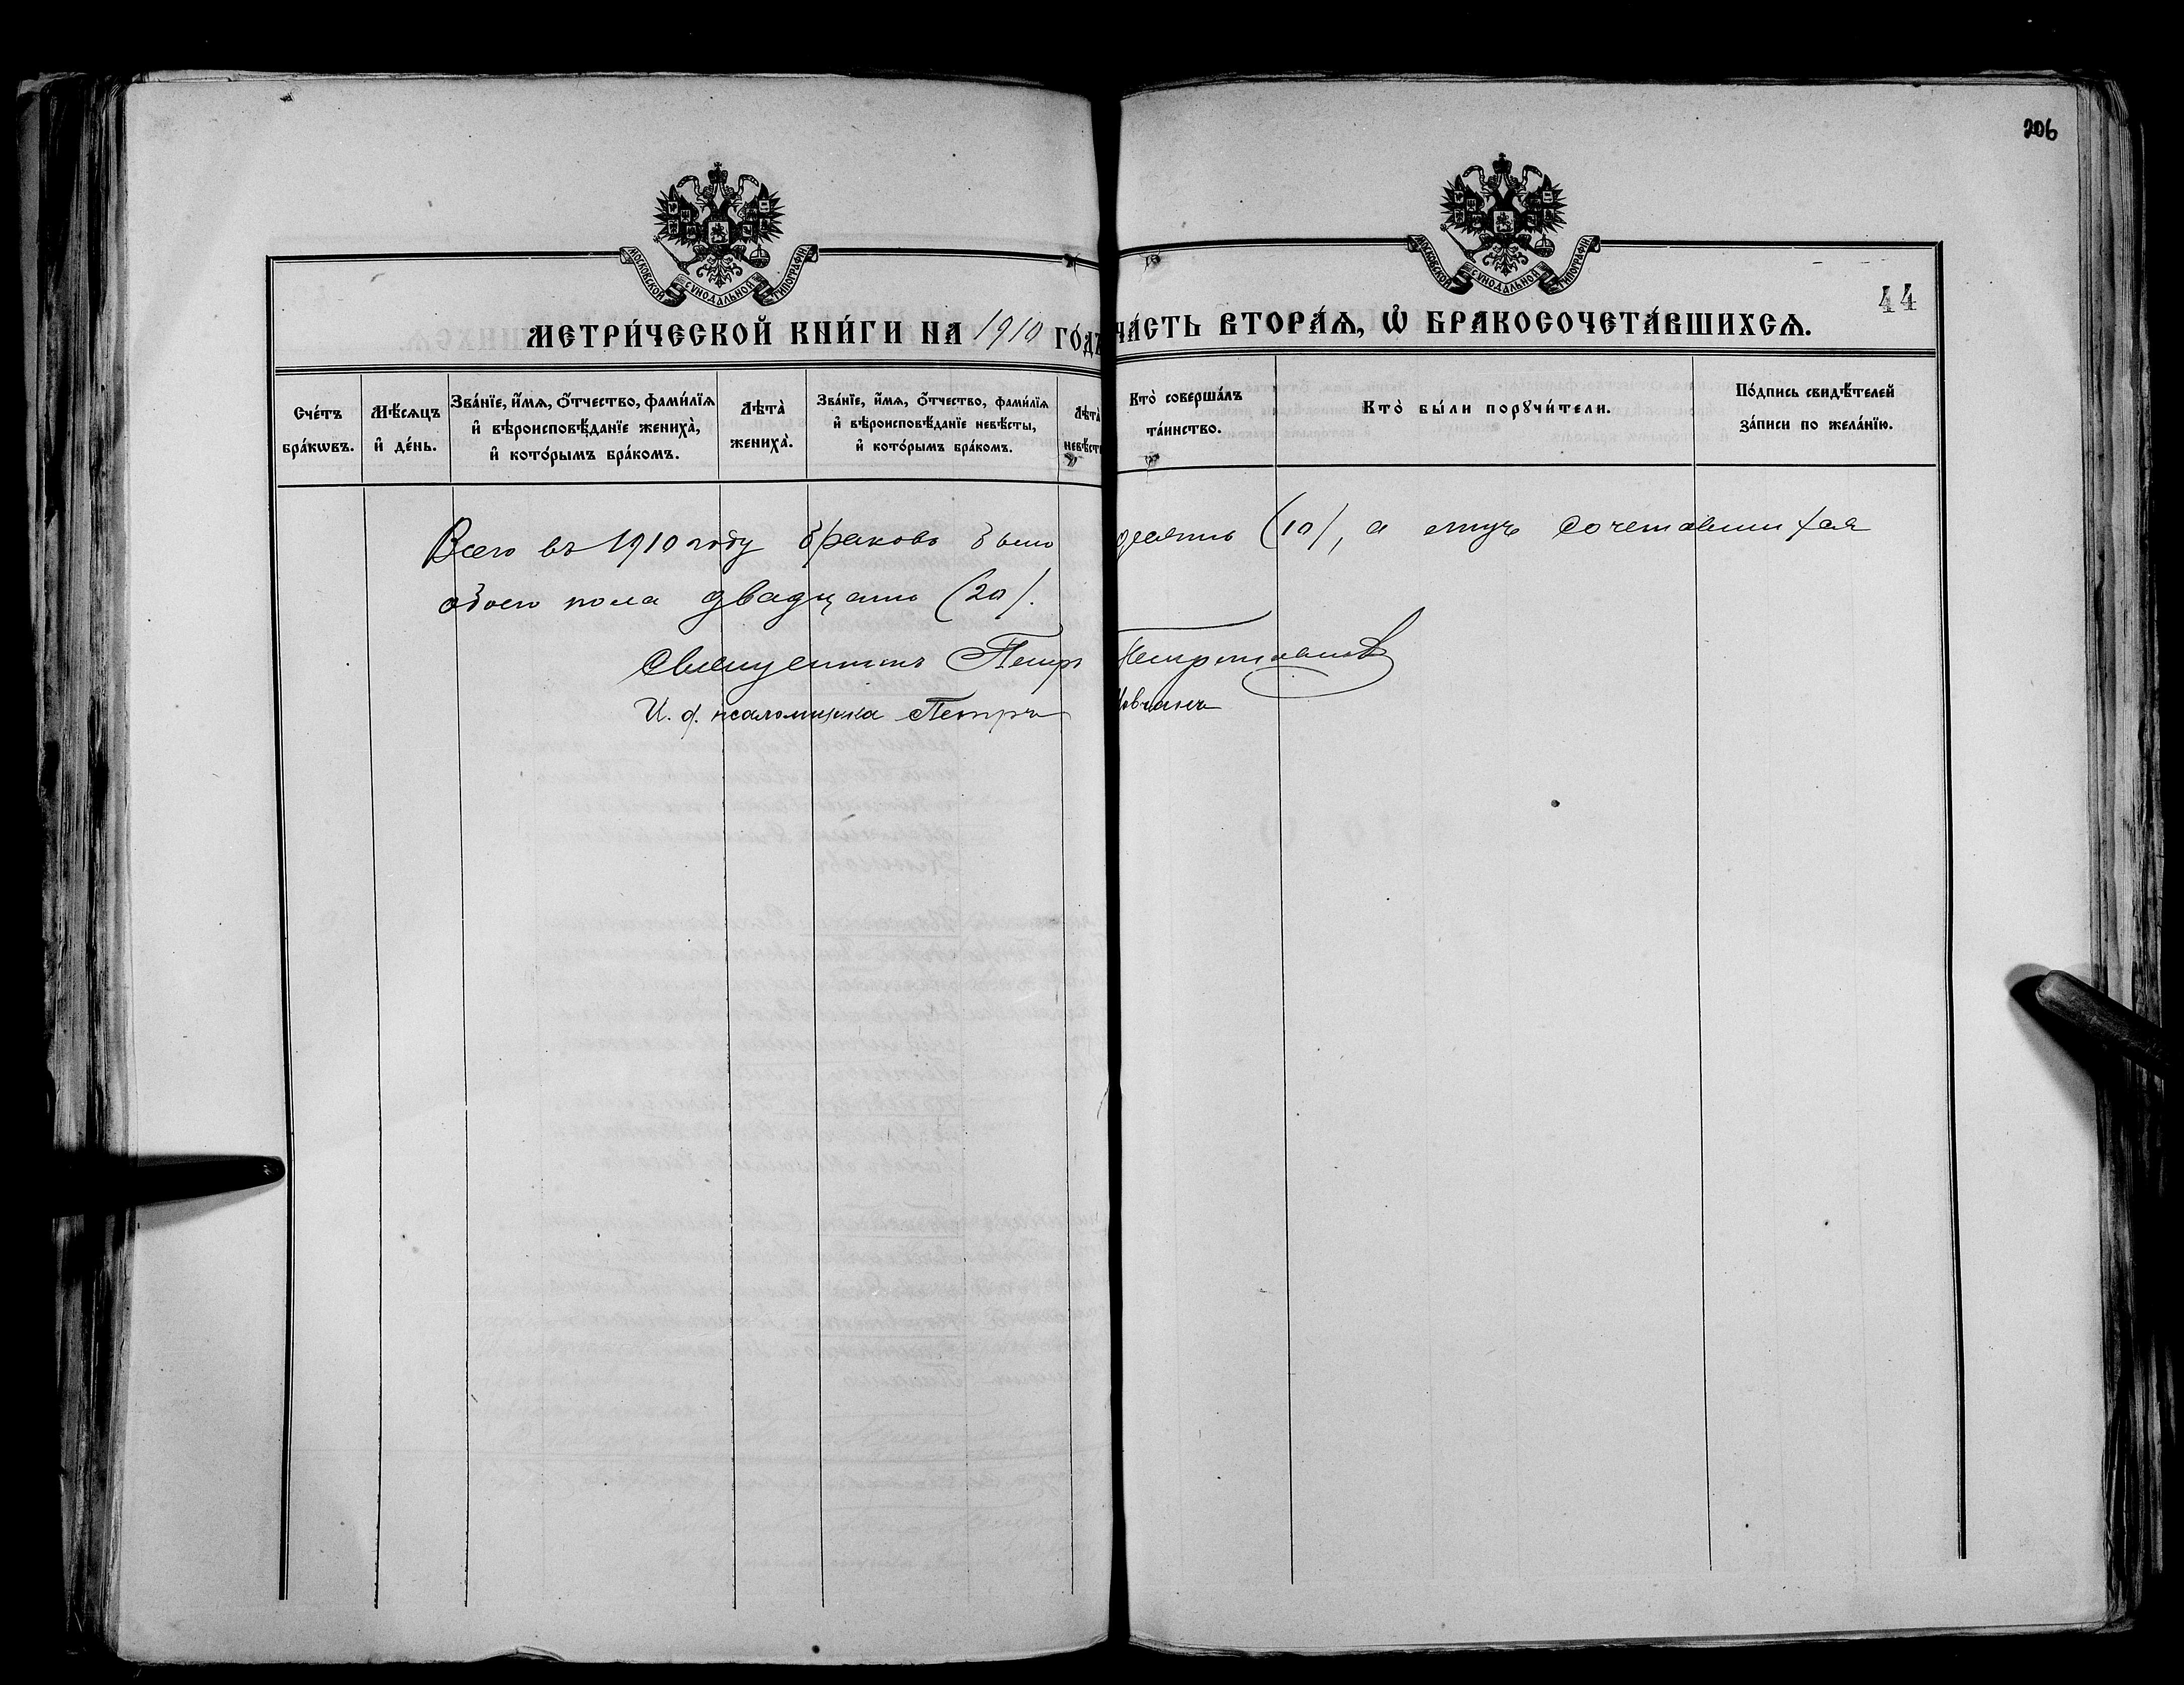 206
МОСКОВСКОЙ СѴНОДАЛЬНОЙ ТИПОГРАФІИ.
МОСКОВСКОЙ СѴНОДАЛЬНОЙ ТИПОГРАФІИ.
44
МЕТРИ́ЧЕСКОЙ КНИ́ГИ НА 1910 ГО́ДЪ ЧА́СТЬ ВТОРА́Ѧ, Ѽ БРАКОСОЧЕТА́ВШИХСѦ.
Сче́тъ бра́кѡвъ.
Мѣ́сѧцъ и҆ де́нь.
Зва́нїе, и҆́мѧ, ѻ҆́тчество, фами́лїѧ и҆ вѣроисповѣ́данїе жениха̀, и҆ кото́рымъ бра́комъ.
Лѣ́та̀ жениха̀.
Зва́нїе, и҆́мѧ, ѻ҆́тчество, фами́лїѧ и҆ вѣроисповѣ́данїе невѣ́сты, и҆ кото́рымъ бра́комъ.
Лѣ́та̀ невѣ́сты
Кто̀ соверша́лъ та́инство.
Кто̀ бы́ли порꙋчи́тели.
По́дпись свидѣ́телей за́писи по жела́нїю.
Всего въ 1910 году браковъ было десять (10), а лицъ сочетавшихся
обоего пола двадцать (20).
Священникъ Петръ
И. д. псаломщика Петръ